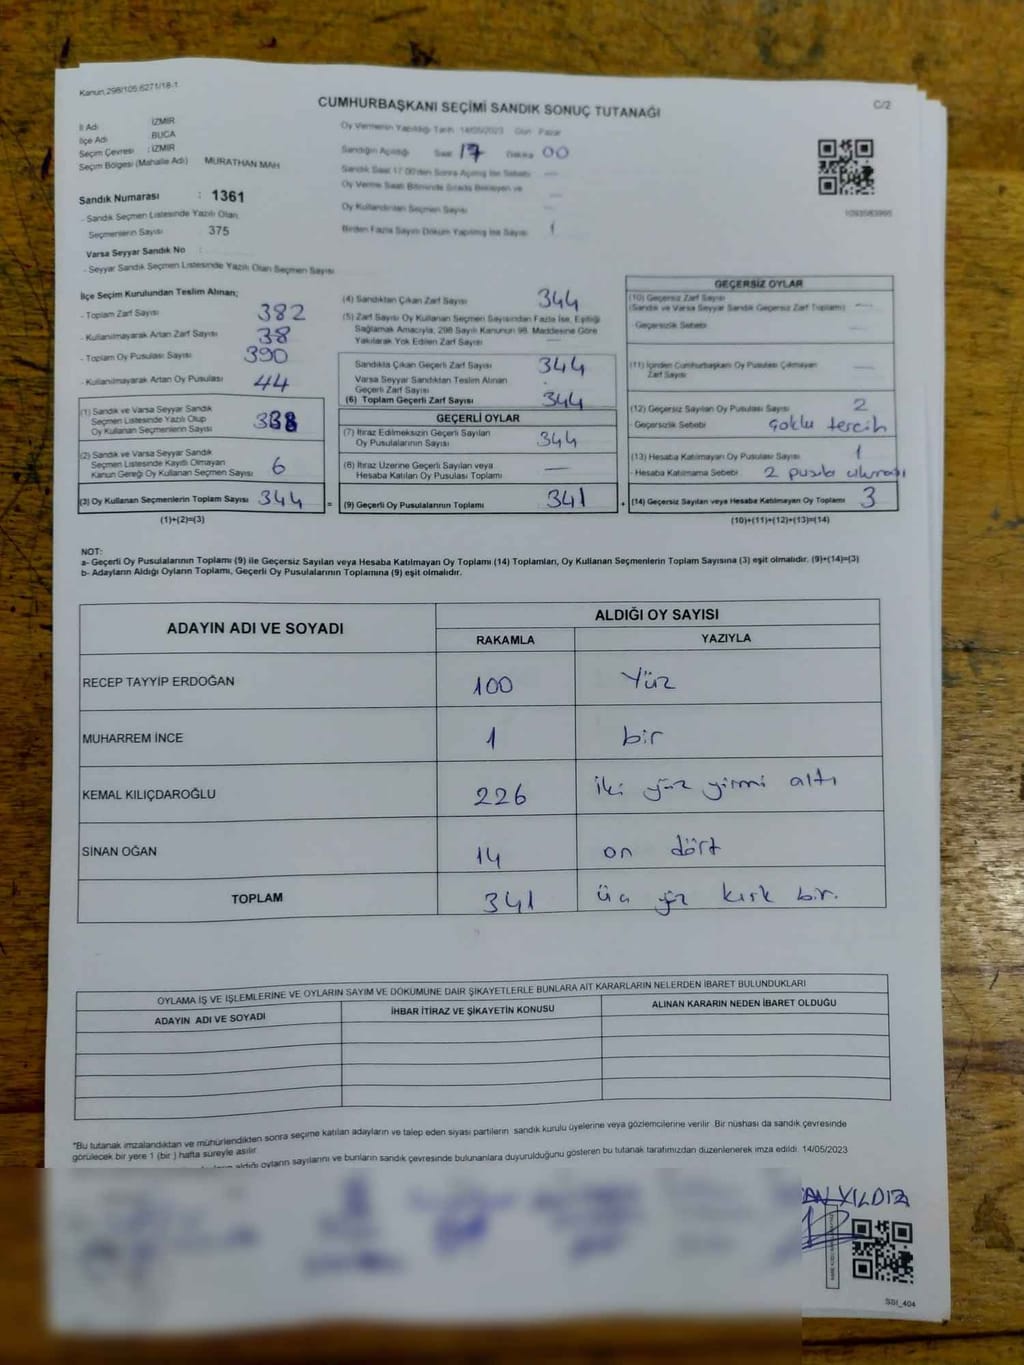 Kanun,298/105:6271/18-1
C/2
CUMHURBAŞKANI SEÇİMİ SANDIK SONUÇ TUTANAĞI
İl Adı : İZMİR
İlçe Adı : BUCA
Seçim Çevresi : İZMİR
Seçim Bölgesi (Mahalle Adı) MURATHAN MAH
Sandık Numarası : 1361
- Sandık Seçmen Listesinde Yazılı Olan
Seçmenlerin Sayısı 375
Varsa Seyyar Sandık No :
- Seyyar Sandık Seçmen Listesinde Yazılı Olan Seçmen Sayısı
Oy Vermenin Yapıldığı Tarih 14/05/2023 Gün Pazar
Sandığın Açıldığı Saat 17 Dakika 00
Sandık Saat 17.00'den Sonra Açılmış İse Sebebi —
Oy Verme Saati Bitiminde Sırada Bekleyen ve
Oy Kullandırılan Seçmen Sayısı —
Birden Fazla Sayım Döküm Yapılmış İse Sayısı 1
İlçe Seçim Kurulundan Teslim Alınan;
- Toplam Zarf Sayısı 382
- Kullanılmayarak Artan Zarf Sayısı 38
- Toplam Oy Pusulası Sayısı 390
- Kullanılmayarak Artan Oy Pusulası 44
(1) Sandık ve Varsa Seyyar Sandık
Seçmen Listesinde Yazılı Olup
Oy Kullanan Seçmenlerin Sayısı 338
(2) Sandık ve Varsa Seyyar Sandık
Seçmen Listesinde Kayıtlı Olmayan
Kanun Gereği Oy Kullanan Seçmen Sayısı 6
(3) Oy Kullanan Seçmenlerin Toplam Sayısı 344
(1)+(2)=(3)
=
(4) Sandıktan Çıkan Zarf Sayısı 344
(5) Zarf Sayısı Oy Kullanan Seçmen Sayısından Fazla İse, Eşitliği
Sağlamak Amacıyla, 298 Sayılı Kanunun 98. Maddesine Göre
Yakılarak Yok Edilen Zarf Sayısı —
Sandıkta Çıkan Geçerli Zarf Sayısı 344
Varsa Seyyar Sandıktan Teslim Alınan
Geçerli Zarf Sayısı
(6) Toplam Geçerli Zarf Sayısı 344
GEÇERLİ OYLAR
(7) İtiraz Edilmeksizin Geçerli Sayılan
Oy Pusulalarının Sayısı 344
(8) İtiraz Üzerine Geçerli Sayılan veya
Hesaba Katılan Oy Pusulası Toplamı —
(9) Geçerli Oy Pusulalarının Toplamı 341
+
GEÇERSİZ OYLAR
(10) Geçersiz Zarf Sayısı
(Sandık ve Varsa Seyyar Sandık Geçersiz Zarf Toplamı) —
- Geçersizlik Sebebi —
(11) İçinden Cumhurbaşkanı Oy Pusulası Çıkmayan
Zarf Sayısı —
(12) Geçersiz Sayılan Oy Pusulası Sayısı 2
- Geçersizlik Sebebi Çoklu tercih
(13) Hesaba Katılmayan Oy Pusulası Sayısı 1
- Hesaba Katılmama Sebebi 2 pusula
(14) Geçersiz Sayılan veya Hesaba Katılmayan Oy Toplamı 3
(10)+(11)+(12)+(13)=(14)
NOT:
a- Geçerli Oy Pusulalarının Toplamı (9) ile Geçersiz Sayılan veya Hesaba Katılmayan Oy Toplamı (14) Toplamları, Oy Kullanan Seçmenlerin Toplam Sayısına (3) eşit olmalıdır. (9)+(14)=(3)
b- Adayların Aldığı Oyların Toplamı, Geçerli Oy Pusulalarının Toplamına (9) eşit olmalıdır.
ADAYIN ADI VE SOYADI
ALDIĞI OY SAYISI
RAKAMLA YAZIYLA
RECEP TAYYİP ERDOĞAN 100 Yüz
MUHARREM İNCE 1 bir
KEMAL KILIÇDAROĞLU 226 iki yüz yirmi altı
SİNAN OĞAN 14 on dört
TOPLAM 341 üç yüz kırk bir.
OYLAMA İŞ VE İŞLEMLERİNE VE OYLARIN SAYIM VE DÖKÜMÜNE DAİR ŞİKAYETLERLE BUNLARA AİT KARARLARIN NELERDEN İBARET BULUNDUKLARI
ADAYIN ADI VE SOYADI İHBAR İTİRAZ VE ŞİKAYETİN KONUSU ALINAN KARARIN NEDEN İBARET OLDUĞU
*Bu tutanak imzalandıktan ve mühürlendikten sonra seçime katılan adayların ve talep eden siyasi partilerin sandık kurulu üyelerine veya gözlemcilerine verilir. Bir nüshası da sandık çevresinde
görülecek bir yere 1 (bir ) hafta süreyle asılır.
aldığı oyların sayılarını ve bunların sandık çevresinde bulunanlara duyurulduğunu gösteren bu tutanak tarafımızdan düzenlenerek imza edildi. 14/05/2023
YILDIZ
SSI_404